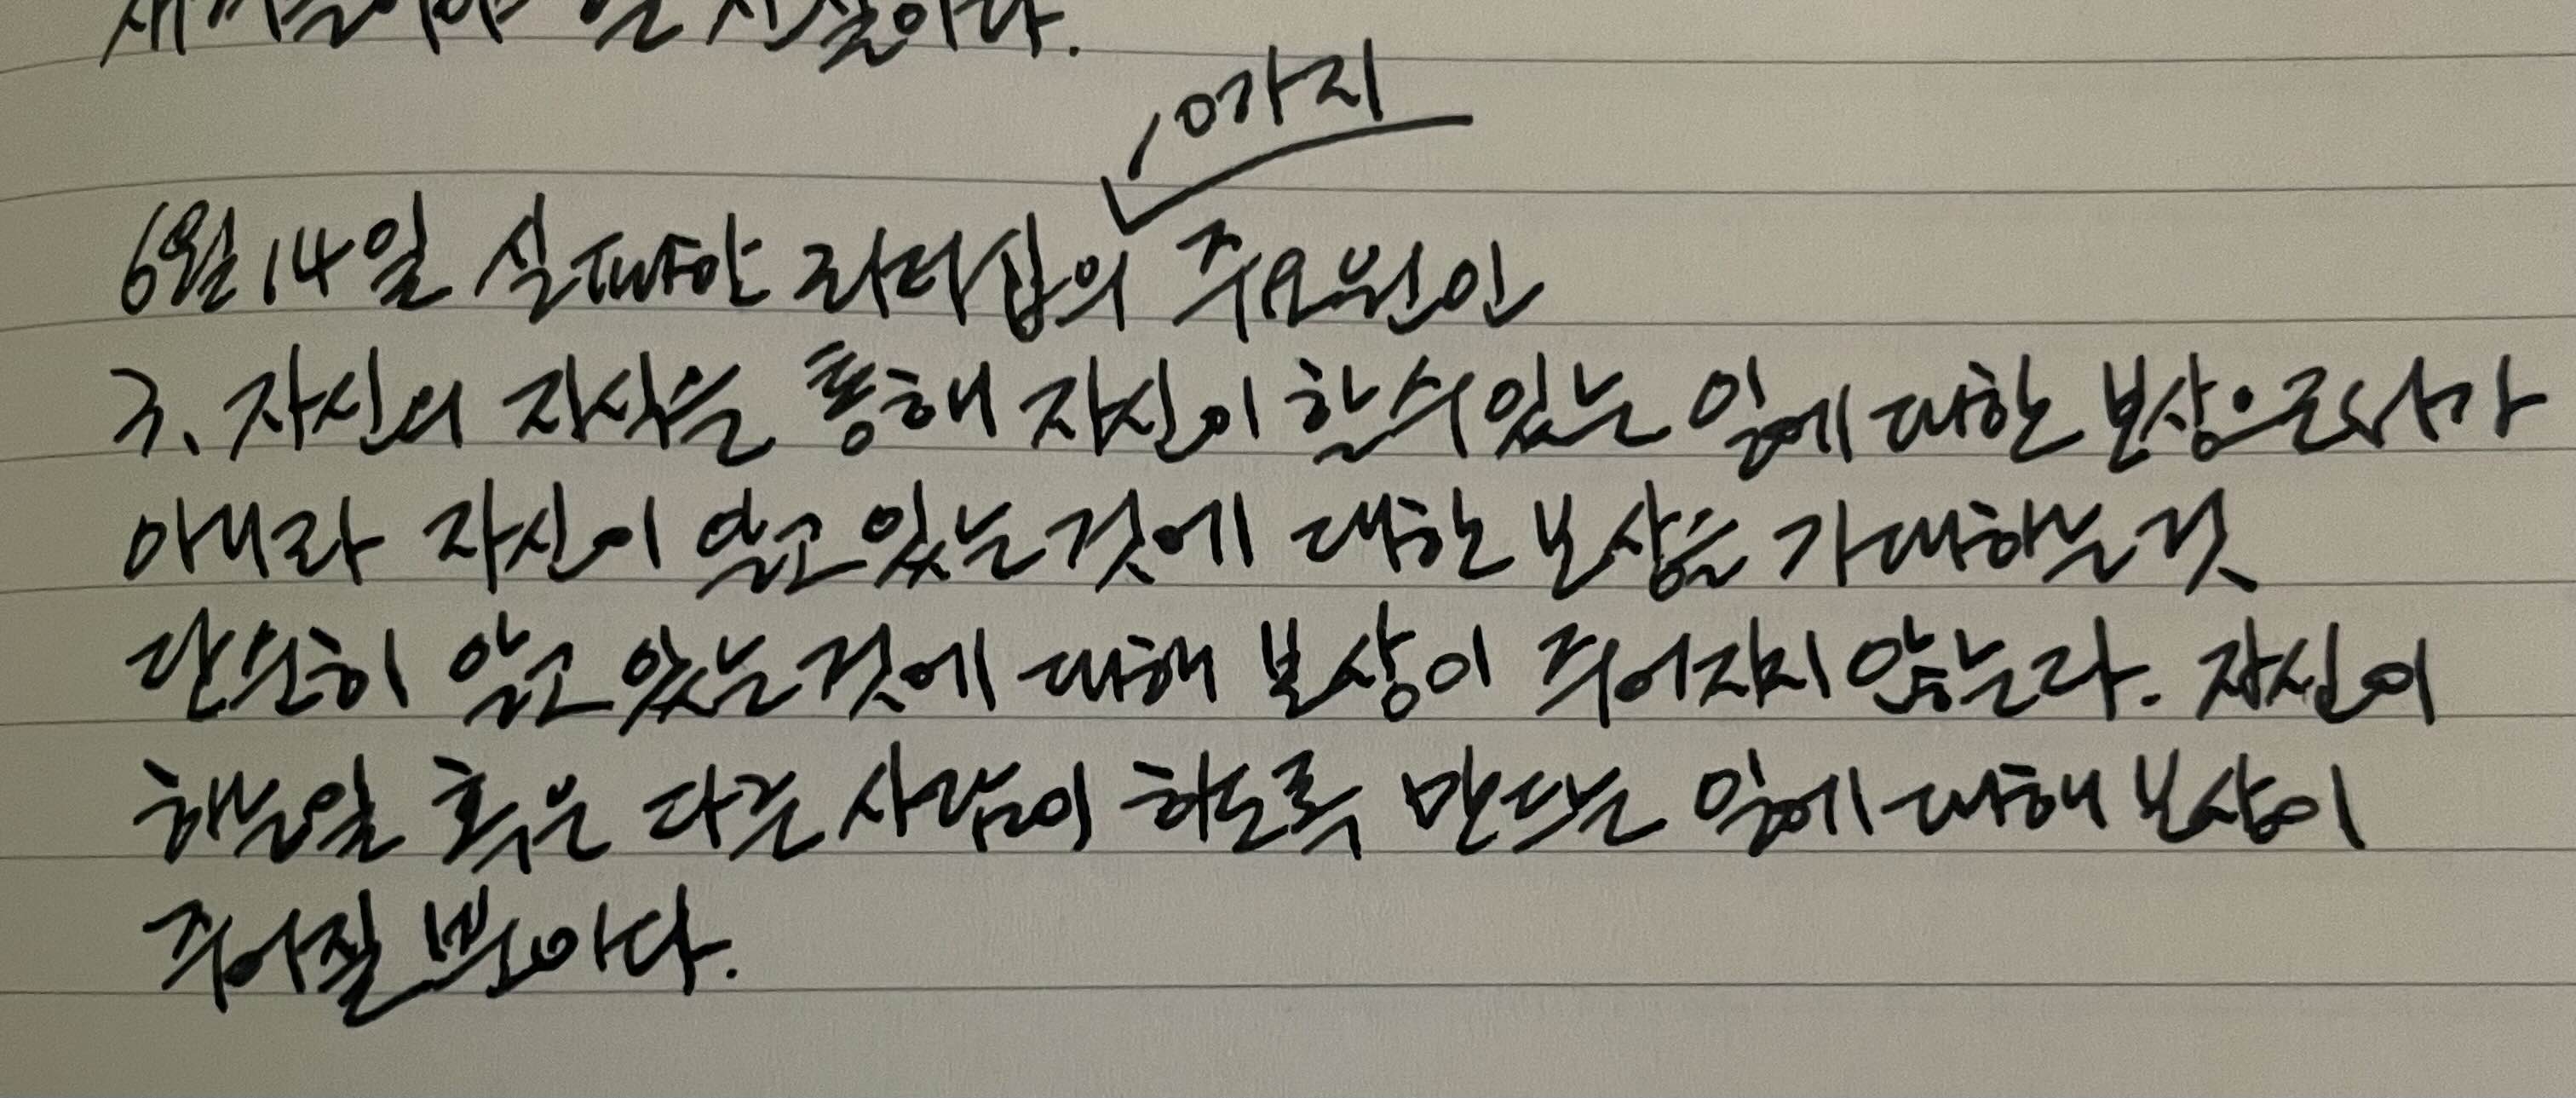 새겨들어야 할 진실이다.
10가지
6월 14일 실패한 리더십의 주요원인
3. 자신의 지식을 통해 자신이 할수있는 일에 대한 보상으로서가
아니라 자신이 알고있는것에 대한 보상을 기대하는것
단순히 알고있는것에 대해 보상이 주어지지 않는다. 자신이
해논일 혹은 다른 사람이 하도록 만드는 일에 대해 보상이
주어질 뿐이다.